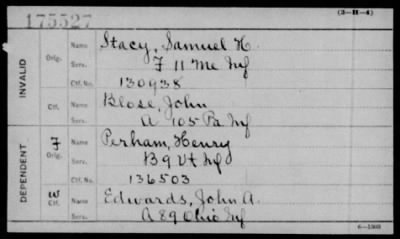 175527
(3-H-4)
INVALID
Orig.
Name Stacy, Samuel H.
Serv. F 11 Me Inf
Ctf. No. 130938
Ctf.
Name Blose, John
Serv. A 105 Pa Inf
DEPENDENT
F
Orig.
Name Perham, Henry
Serv. B 9 Vt Inf
Ctf. No. 136503
W
Ctf.
Name Edwards, John A.
Serv. A 89 Ohio Inf